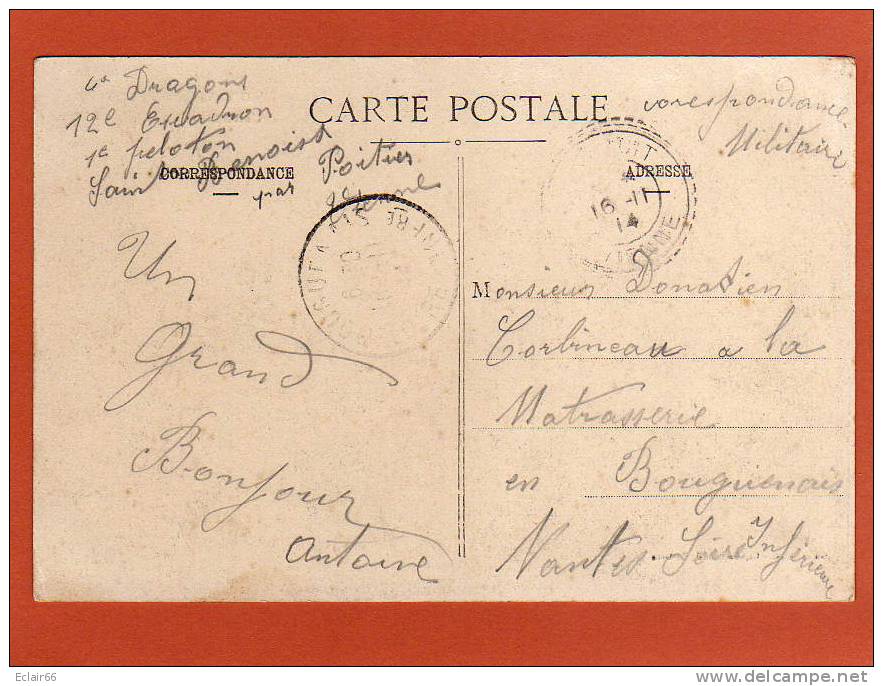 4e Dragons
12e Escadron
1e peloton
Saint Benoist
par Poitiers
Vienne
CARTE POSTALE
corespondance
Militaire
CORRESPONDANCE
ADRESSE
16 -11
14
VIENNE
BOUGUENAIS
Un
Grand
Bonjour
Antoine
Monsieur Donatien
Corbineau a la
Matrasserie
en Bouguenais
Nantes. Loire Inférieure
Eclair66
delcampe.net